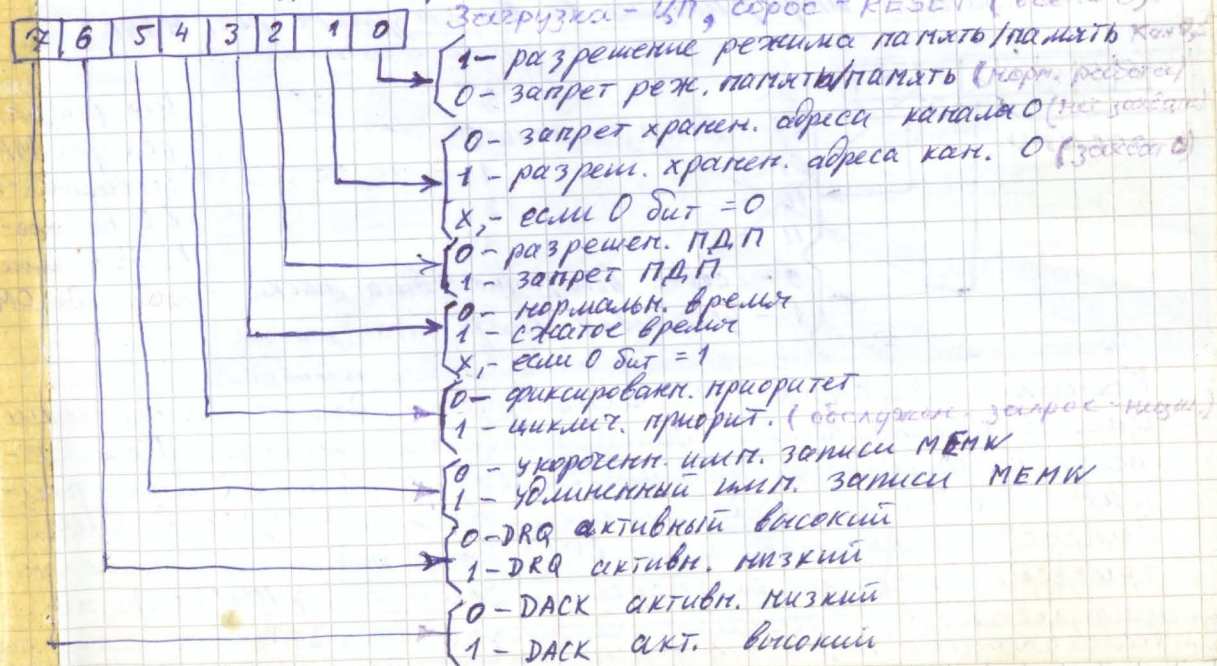 Загрузка - ЦП, сброс - RESET
7 6 5 4 3 2 1 0
1 - разрешение режима память/память
0 - запрет реж. память/память (норм. работа)
0 - запрет хранен. адреса канала 0
1 - разреш. хранен. адреса кан. 0
x, - если 0 бит = 0
0 - разрешен. ПДП
1 - запрет ПДП
0 - нормальн. время
1 - сжатое время
x, - если 0 бит = 1
0 - фиксированн. приоритет
1 - циклич. приорит. (обслужен. запрос - низш.)
0 - укороченн. имп. записи MEMW
1 - удлиненный имп. записи MEMW
0 - DRQ активный высокий
1 - DRQ активн. низкий
0 - DACK активн. низкий
1 - DACK акт. высокий